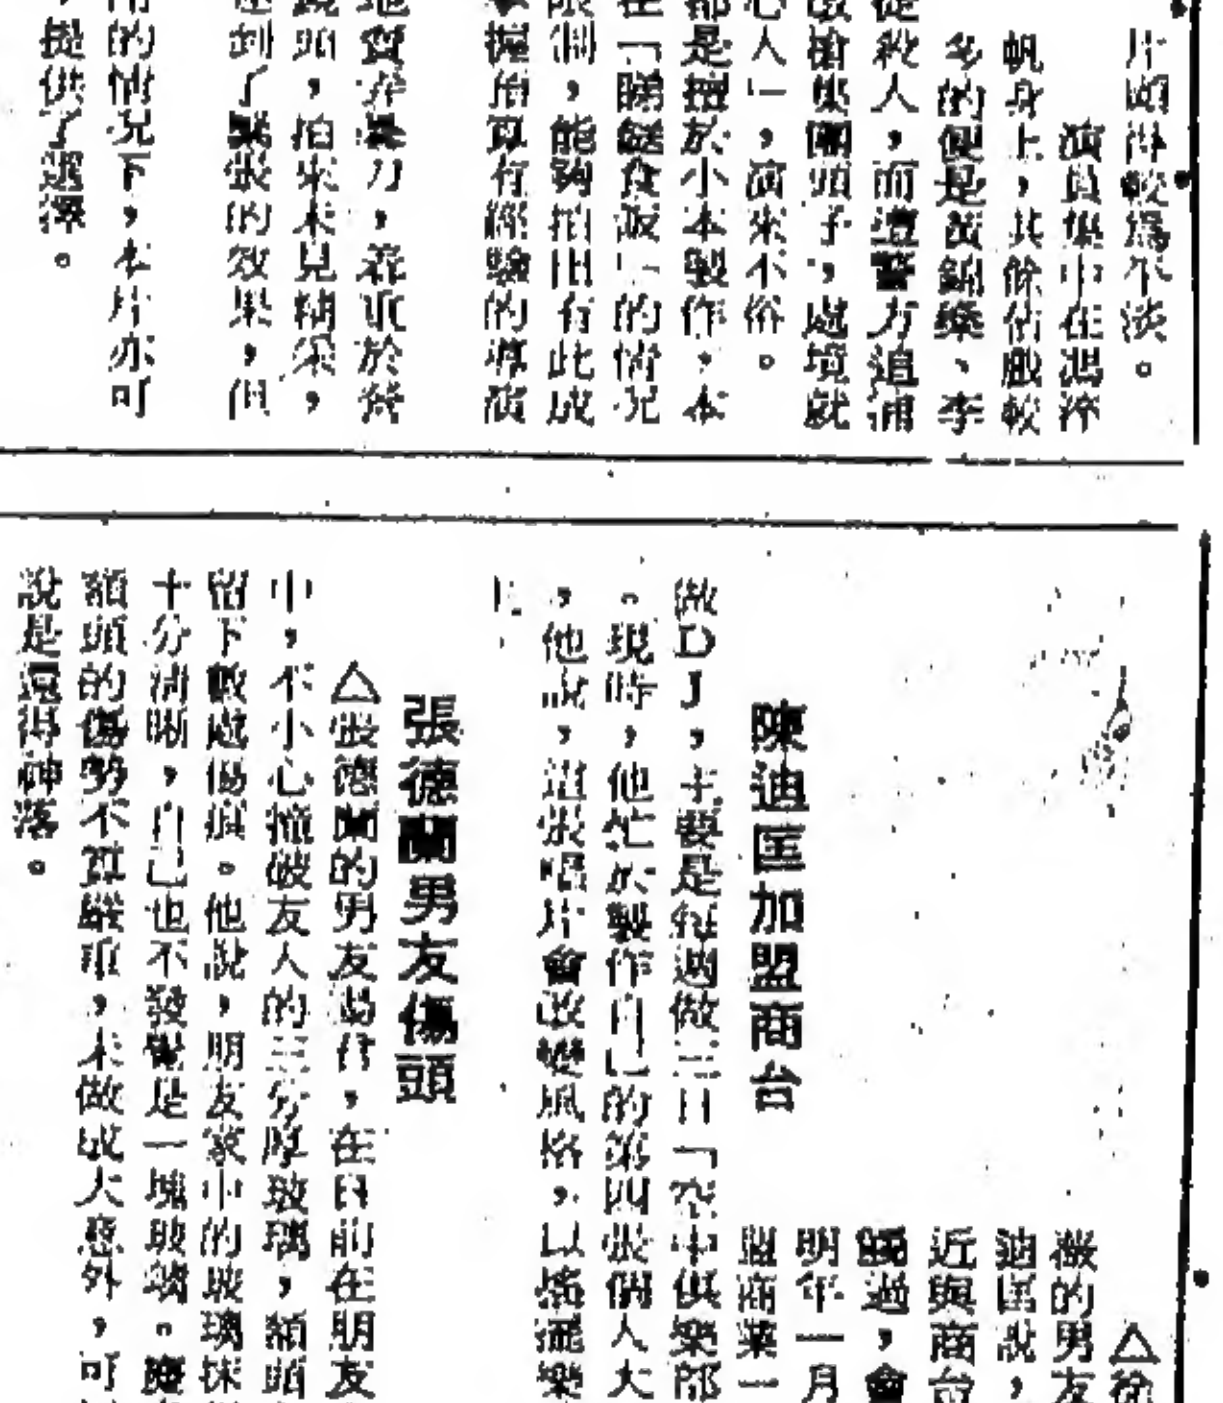 片頗得較為不淡。
演員集中在馮淬
帆身上,其餘佔戲較
多的便是黃錦燊、李
從殺人,而遭警方追捕
槍集團頭子,處境就
心人」,演來不俗。
都是擅於小本製作,本
在「睇餸食飯」的情況
限制,能夠拍出有此成
掌握預算有經驗的導演
地賣弄暴力,着重於營
鏡頭,拍來未見精采,
達到了緊張的效果,但
的情況下,本片亦可
,提供了選擇。
陳迪匡加盟商台
△徐
薇的男友
迪匡說,
近與商台
觸過,會
明年一月
盟商業一
做DJ,主要是每週做三日「空中俱樂部
。現時,他忙於製作自己的第四張個人大
,他說,這張唱片會改變風格,以搖擺樂
張德蘭男友傷頭
△張德蘭的男友,在日前在朋友
中,不小心撞破友人的三分厚玻璃,額頭
留下數處傷痕。他說,朋友家中的玻璃抹
十分清晰,自己也不發覺是一塊玻璃。
額頭的傷勢不算嚴重,未做成大意外,可
說是還得神落。